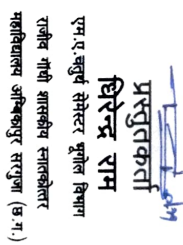 प्रस्तुतकर्ता
धिरेन्द्र राम
एम.ए.चतुर्थ सेमेस्टर भूगोल विभाग
राजीव गांधी शासकीय स्नातकोत्तर
महाविद्यालय अम्बिकापुर सरगुजा (छ.ग.)